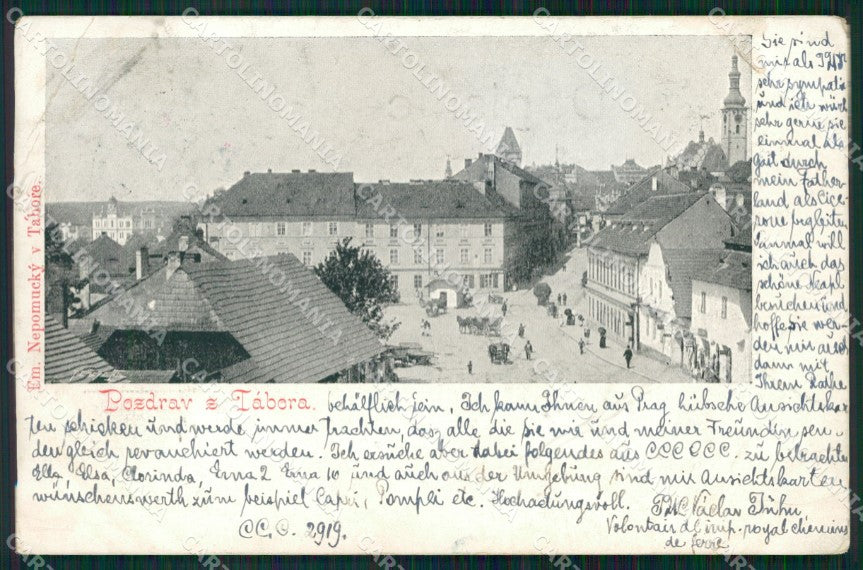 Sie sind
mir als
sehr sympatis
und ich würd
sehr gerne sie
einmal als
gait durch
mein Father
land als Cice
rone begleiten
einmal will
ich auch das
schöne Capri
besuchen und
hoffe sie wer
den mir auch
dann mit
Ihrem Rathe
Em. Nepomucký v Táboře.
Pozdrav z Tábora.
behölflich sein. Ich kann Ihnen aus Prag hübsche Ansichtskar
ten schicken und werde immer trachten, das alle die sie mir und meiner Freundin sen
den gleich revanchiert werden. Ich ersuche aber dabei folgendes aus CCC CCC. zu betrachten
Ella, Elsa, Clorinda, Erna 2 Erna 10 und auch aus der Umgebung sind mir Ansichtskarten
wünschenswerth zum beispiel Capri, Pompei etc. Hochachtungsvoll. Václav
Volontair d. imp-royal chemins
CC. C. 2919.
de ferre
CARTOLINOMANIA